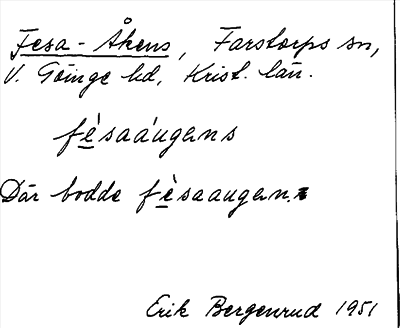 Fesa-Åkens, Farstorps sn,
V. Göinge hd, Krist. län.
fè̱saáugens
Där bodde fè̱saaugen.
Erik Bergenrud 1951